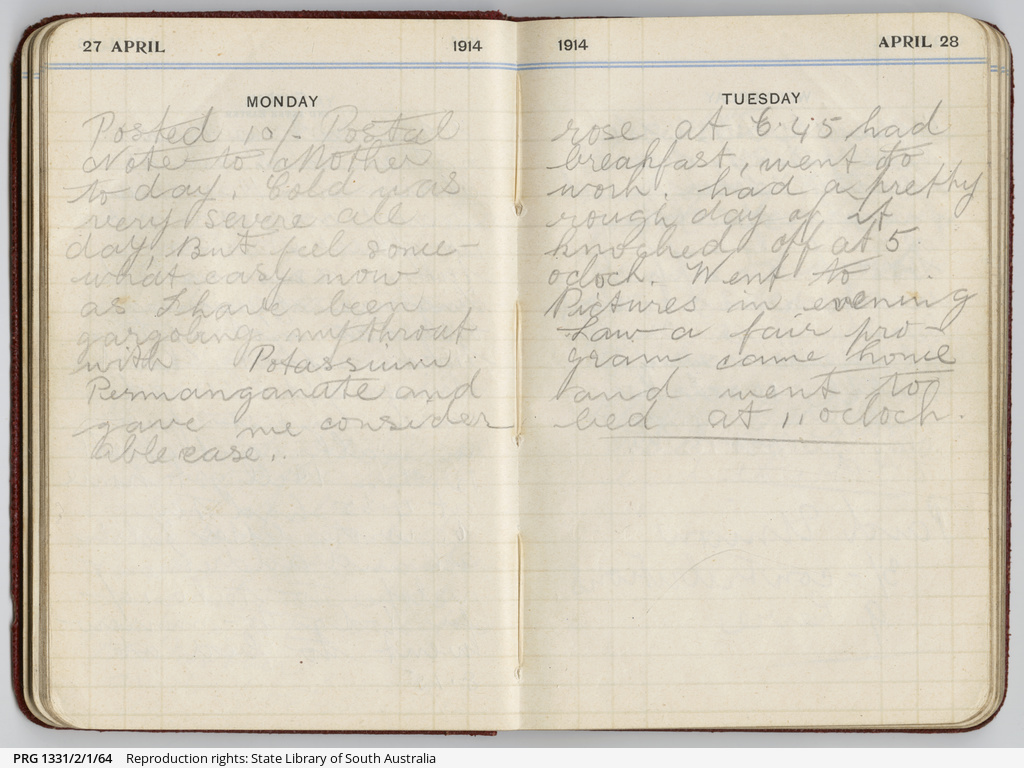 27 APRIL 1914
MONDAY
Posted 10/- Postal
Note to Mother
to day. Cold was
very severe all
day, But feel some-
what easy now
as I have been
gargoling my throat
with Potassium
Permanganate and
gave me consider
able ease..
1914 APRIL 28
TUESDAY
rose at 6.45 had
breakfast, went to
work. had a pretty
rough day of it
knocked off at 5
oclock. Went to
Pictures in evening
Saw a fair pro-
gram came home
and went to
bed at 11 oclock.
PRG 1331/2/1/64 Reproduction rights: State Library of South Australia